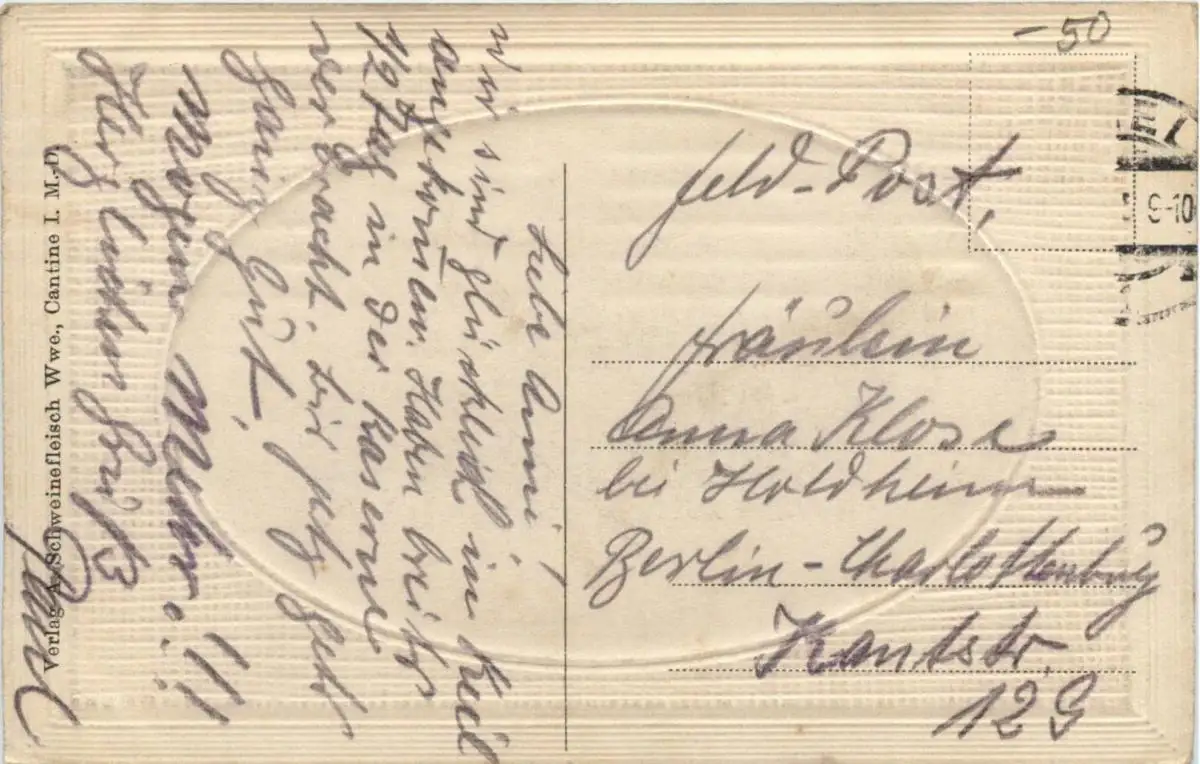 -50
9-10
Feld-Post.
Fräulein
Anna Klose
bei Holdheim
Berlin-Charlottenburg
Kantstr.
129
Liebe Anni!
wir sind glücklich in Kiel
angekommen. Haben breits
1/2 Tag in der Kaserne
verbracht. Bis jetz geht
ganz gut,
Morgen Mehr.!!!
Herzlichen Gruß
Paul
Verlag A. Schweinefleisch Wwe., Cantine I. M.-D.